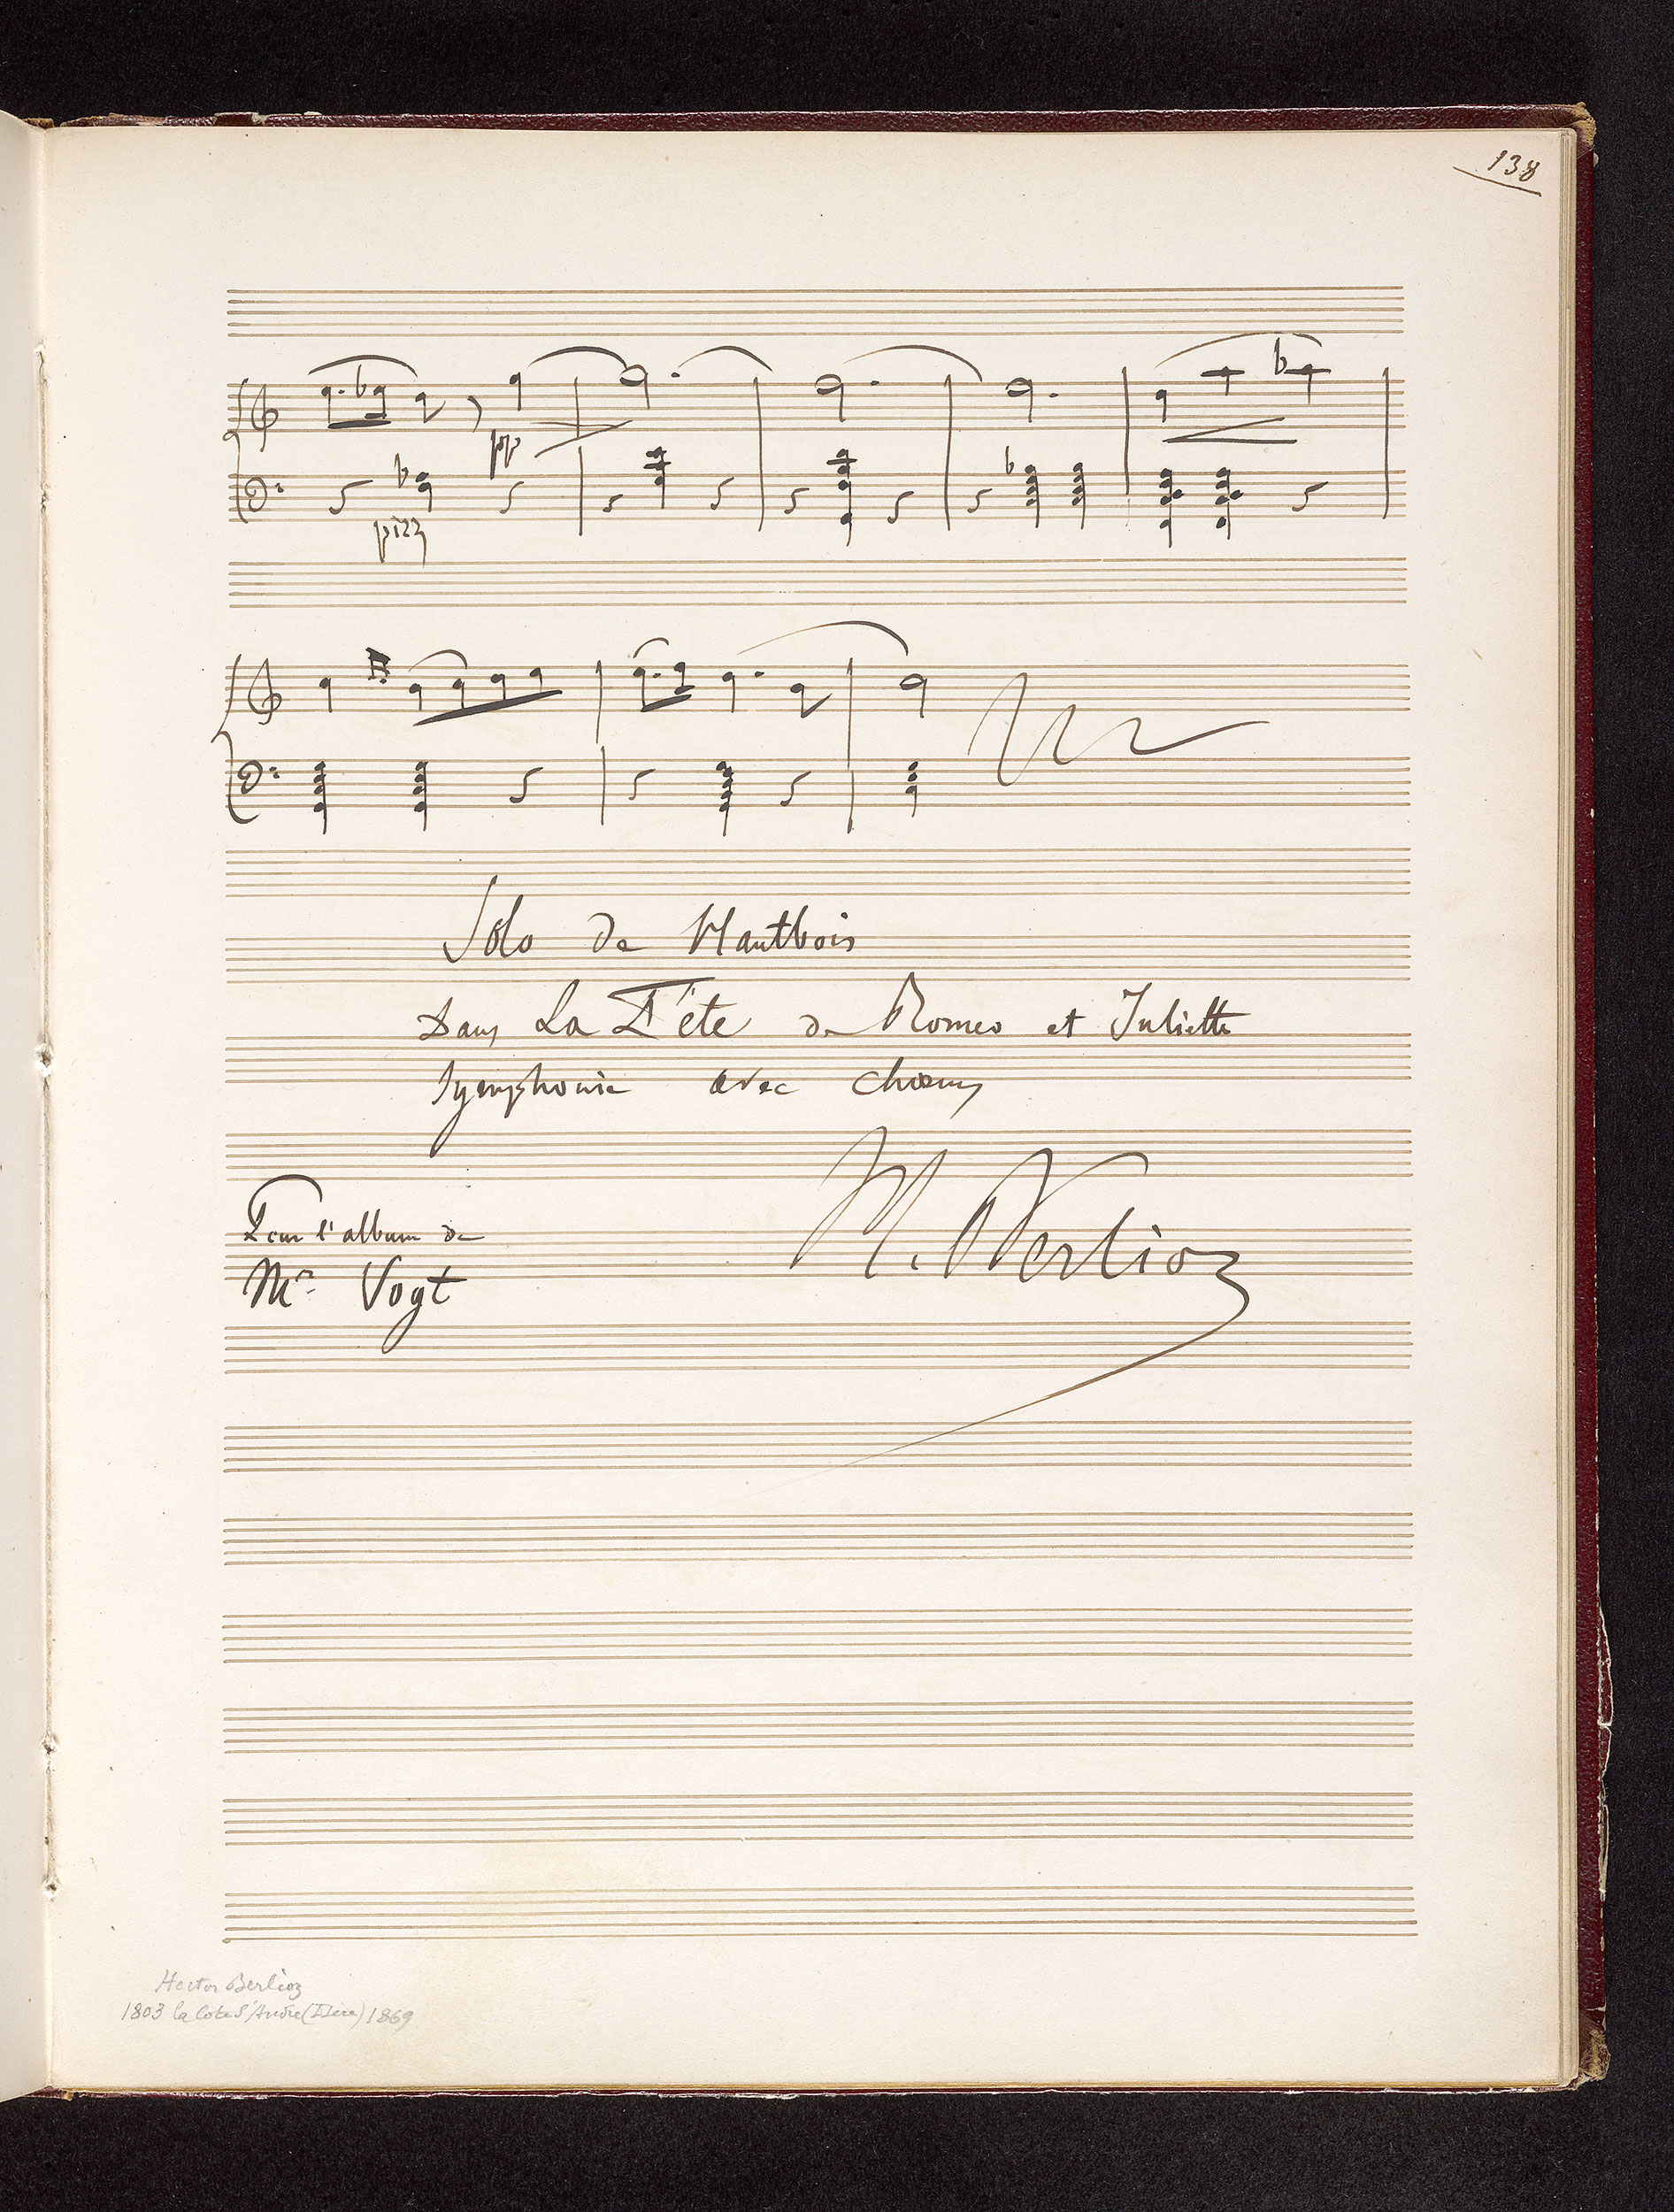 138
pp
pizz
Solo de Hautbois
Dans La Fête de Romeo et Juliette
Symphonie avec chœurs
Pour l'album de
Mr Vogt
H. Berlioz
Hector Berlioz
1803 la Cote St André (Isère) 1869